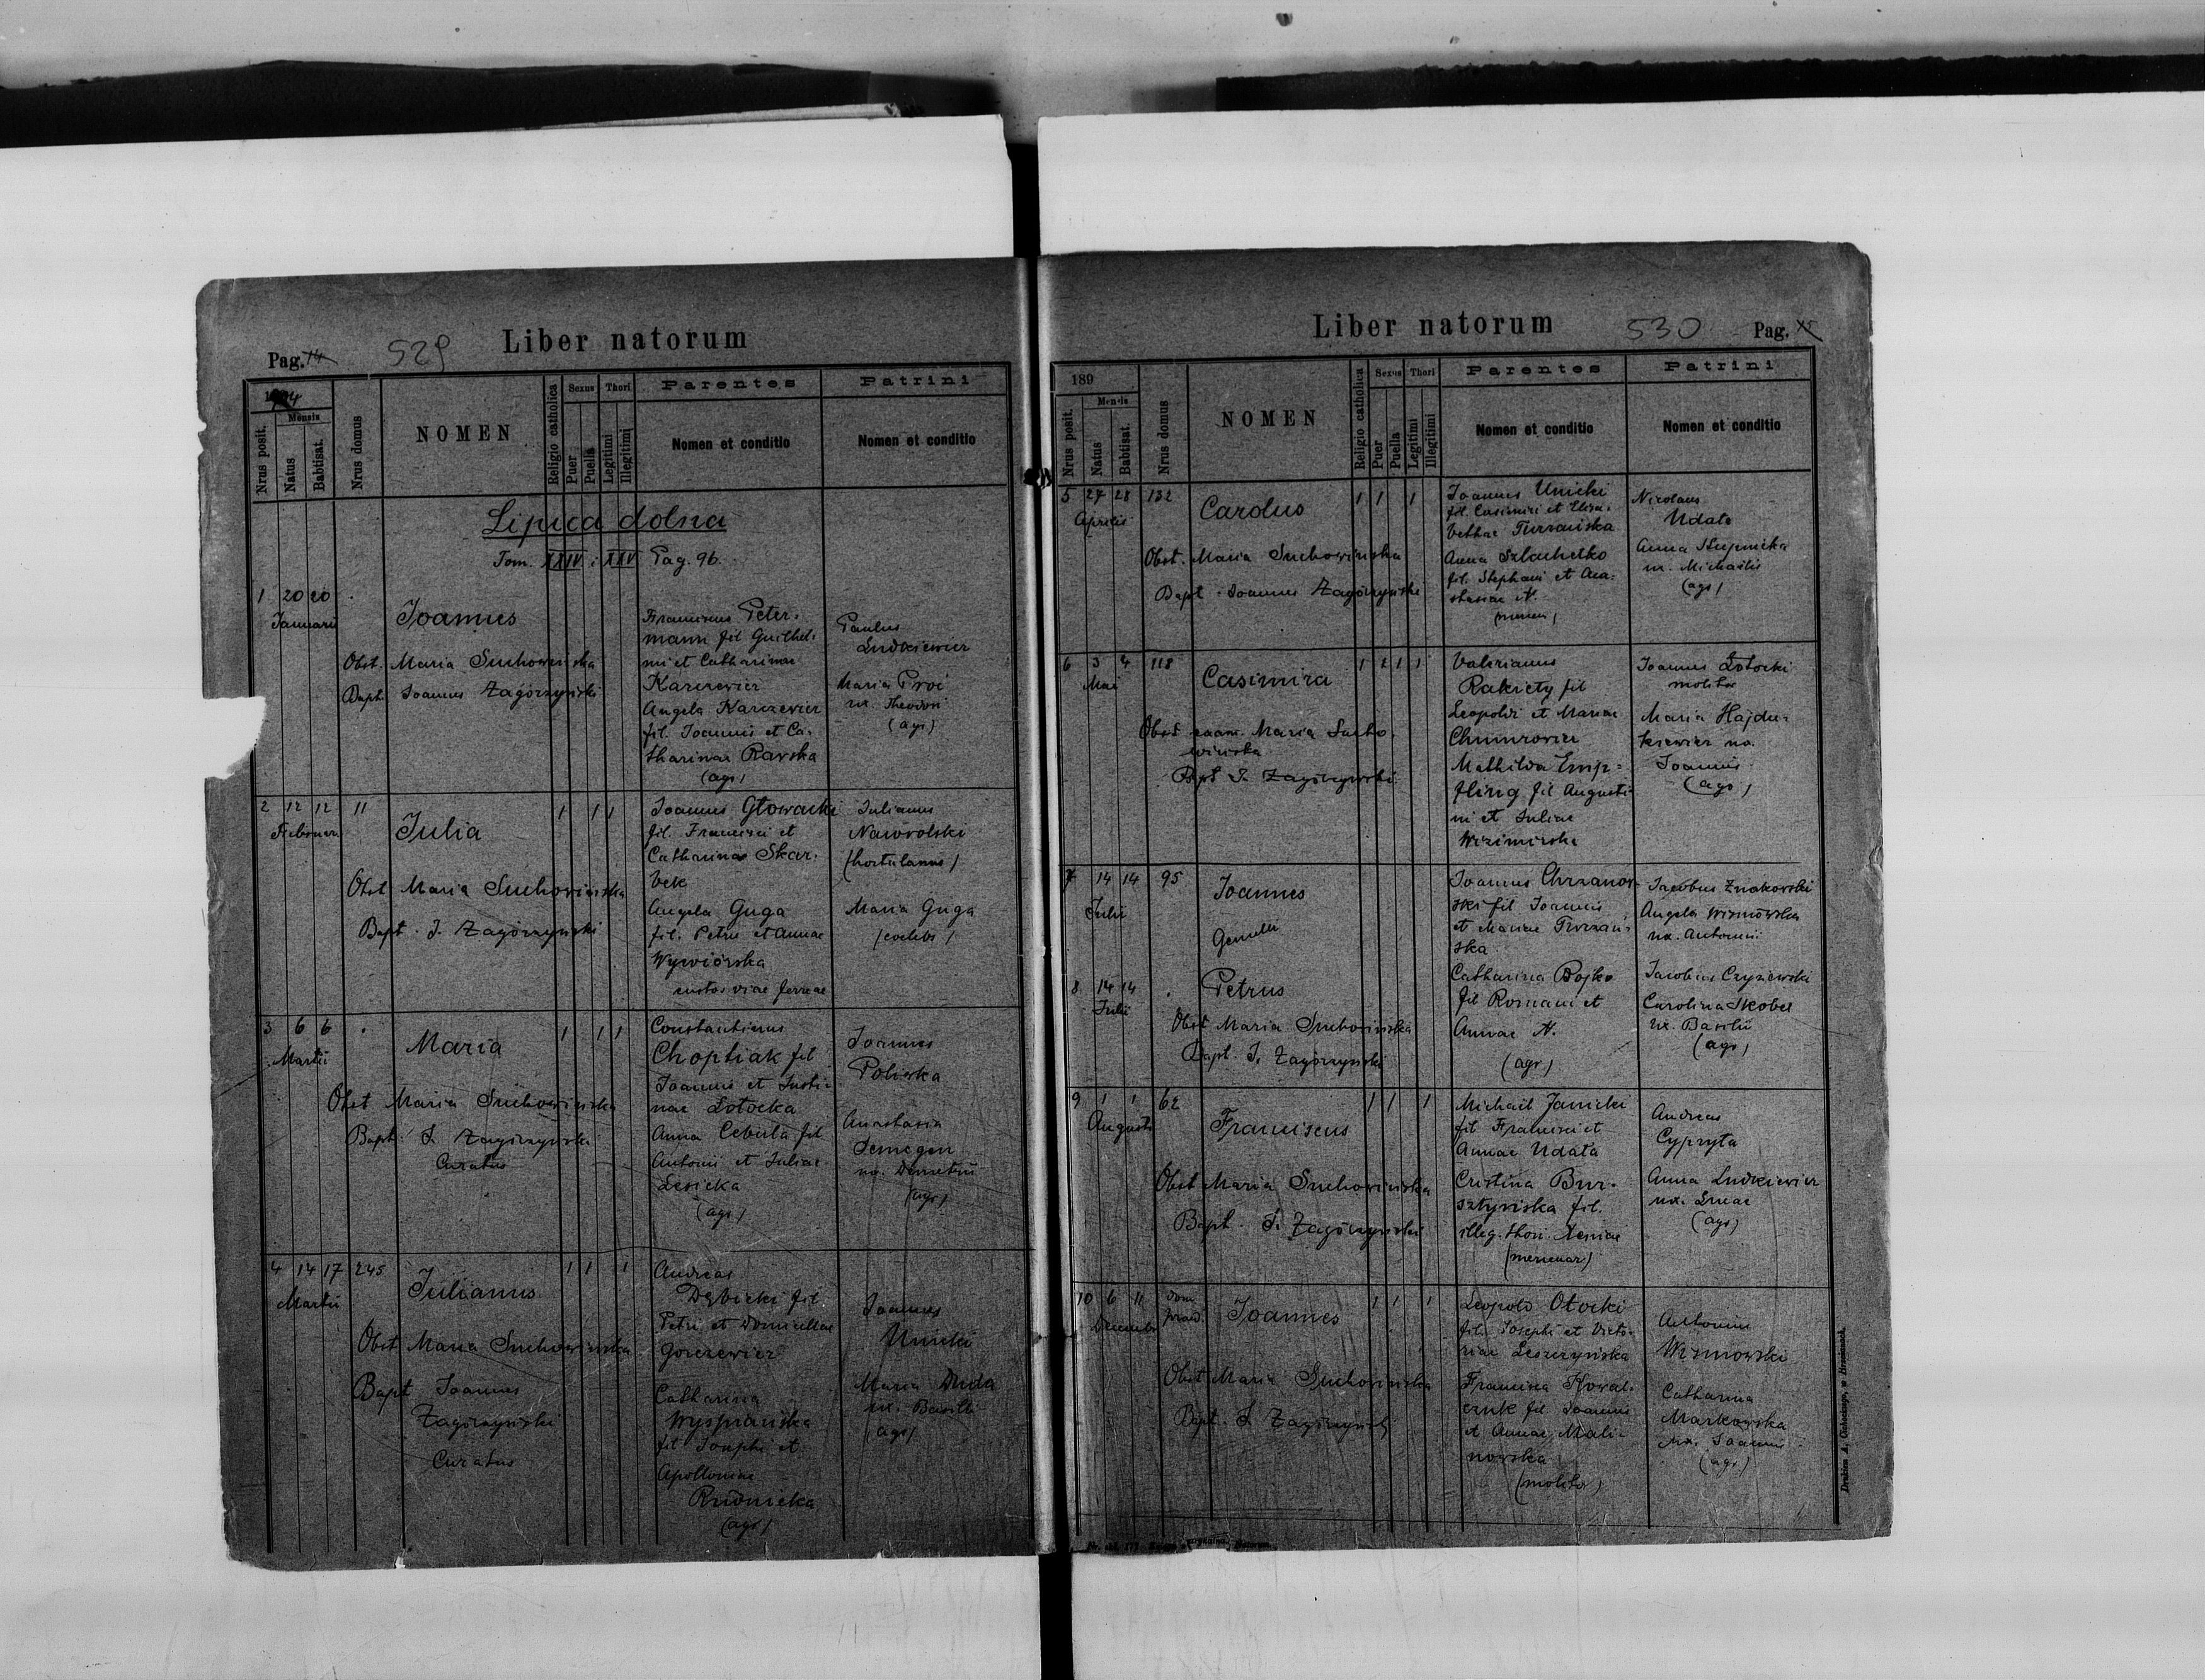 Liber natorum
Pag. 14
529
Nrus posit.
Mensis
Natus
Babtisat.
Nrus domus
NOMEN
Religio catholica
Sexus
Puer
Puella
Thori
Legitimi
Illegitimi
Parentes
Nomen et conditio
Patrini
Nomen et conditio
Lipica dolna
Tom. XXIV i XXV Pag. 96.
1 20 20
Januarii
Joannes
Obst. Maria Suchowińska
Bapt. Joannes Zagórzyński
Franciscus Peter-
mann fil Guilhel-
mi et Catharinae
Karczewicz
Angela Karczewicz
fil. Joannis et Ca-
tharinae Rawska
(agr)
Paulus
Ludkiewicz
Maria Proć
ux. Theodori
(agr)
2 12 12 11
Februarii
Julia
1 1 1
Obst Maria Suchowińska
Bapt. J. Zagórzyński
Joannes Głowacki
fil. Francisci et
Catharinae Skar-
bek
Angela Guga
fil. Petri et Annae
Wywiórska
custos viae ferreae
Julianus
Nawrolski
(hortulanus)
Maria Guga
(coelebs)
3 6 6
Martii
Maria
1 1 1
Obst Maria Suchowińska
Bapt. J. Zagórzyński
Curatus
Constantinus
Choptiak fil
Joannis et Justi-
nae Łotocka
Anna Cebula fil
Antonii et Juliae
Lesicka
(agr)
Joannes
Poliwka
Anastasia
Semegen
ux. Demetrii
(agr)
4 14 17 245
Martii
Julianus
1 1 1
Obst Maria Suchowińska
Bapt Joannes
Zagórzyński
Curatus
Andreas
Dębicki fil
Petri et Domicellae
Gorczewicz
Catharina
Wyspiańska
fil Josephi et
Apolloniae
Rudnicka
(agr)
Joannes
Unicki
Maria Duda
ux. Basilii
(agr)
Liber natorum
530
Pag. 15
189
Nrus posit.
Mensis
Natus
Babtisat.
Nrus domus
NOMEN
Religio catholica
Sexus
Puer
Puella
Thori
Legitimi
Illegitimi
Parentes
Nomen et conditio
Patrini
Nomen et conditio
5 27 28 132
Aprilis
Carolus
1 1 1
Obst. Maria Suchowińska
Bapt. Joannes Zagórzyński
Joannes Unicki
fil. Casimiri et Elisa-
bethae Turzańska
Anna Szlachetko
fil. Stephani et Ana-
stasiae N.
Nicolaus
Udata
Anna Słupnicka
ux. Michaelis
(agr)
6 3 4 118
Mai
Casimira
1 1 1
Obst exam. Maria Sucho-
wińska
Bapt J. Zagórzyński
Valerianus
Rakiety fil
Leopoldi et Mariae
Chmurowicz
Mathilda Emp-
fling fil Augusti-
ni et Juliae
Wizimirska
Joannes Łotocki
molitor
Maria Hajdu-
kiewicz ux.
Joannis
(agr)
7 14 14 95
Julii
Joannes
Gemelli
8 14 14
Julii
Petrus
Obst Maria Suchowińska
Bapt. J. Zagórzyński
Joannes Chrzanow-
ski fil Joannis
et Mariae Turzań-
ska
Catharina Bojko
fil Romani et
Annae N.
(agr)
Jacobus Znakowski
Angela Wismowska
ux. Antonii
Jacobus Czyżewski
Carolina Skobel
ux. Basilii
(agr)
9 1 1 62
Augusti
Franciscus
1 1 1
Obst Maria Suchowińska
Bapt. J. Zagórzyński
Michael Janicki
fil Francisci et
Annae Udata
Cristina Bur-
sztyńska fil.
illeg. thori Xeniae
(mercenar)
Andreas
Cypryta
Anna Ludkiewicz
ux. Lucae
(agr)
10 6 11 dom
praed.
Decembr
Joannes
1 1 1
Obst Maria Suchowińska
Bapt. J. Zagórzyński
Leopold Otocki
fil. Josephi et Victo-
riae Leszczyńska
Francisca Kowal-
czuk fil Joannis
et Annae Mali-
nowska
(molitor)
Antonius
Wismowski
Catharina
Markowska
ux. Joannis
(agr)